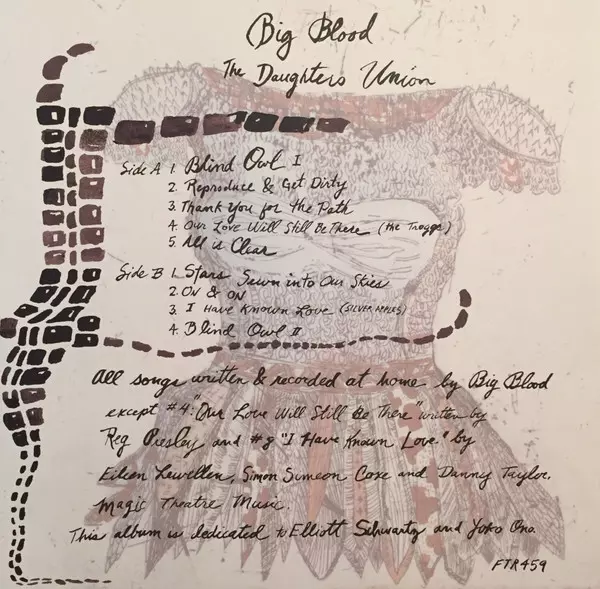 Big Blood
The Daughters Union
Side A 1. Blind Owl I
2. Reproduce & Get Dirty
3. Thank You for the Path
4. Our Love Will Still Be There (the Troggs)
5. All is Clear
Side B 1. Stars Sewn into Our Skies
2. On & On
3. I Have Known Love (SILVER APPLES)
4. Blind Owl II
All songs written & recorded at home by Big Blood
except #4 "Our Love Will Still Be There" written by
Reg Presley and #8 "I Have Known Love." by
Eileen Lewellen, Simon Sumeon Coxe and Danny Taylor.
Magic Theatre Music.
This album is dedicated to Elliott Schwartz and Yoko Ono.
FTR459